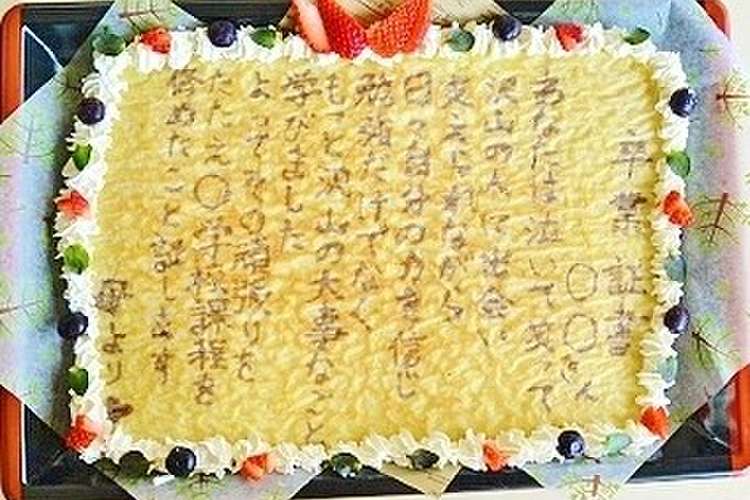 卒業証書
〇〇さん
あなたは泣いて笑って
沢山の人に出会い
支えられながら
日々自分の力を信じ
勉強だけでなく
もっと沢山の大事なこと
学びました
よってその頑張りを
たたえ〇学校課程を
修めたこと証します
母より